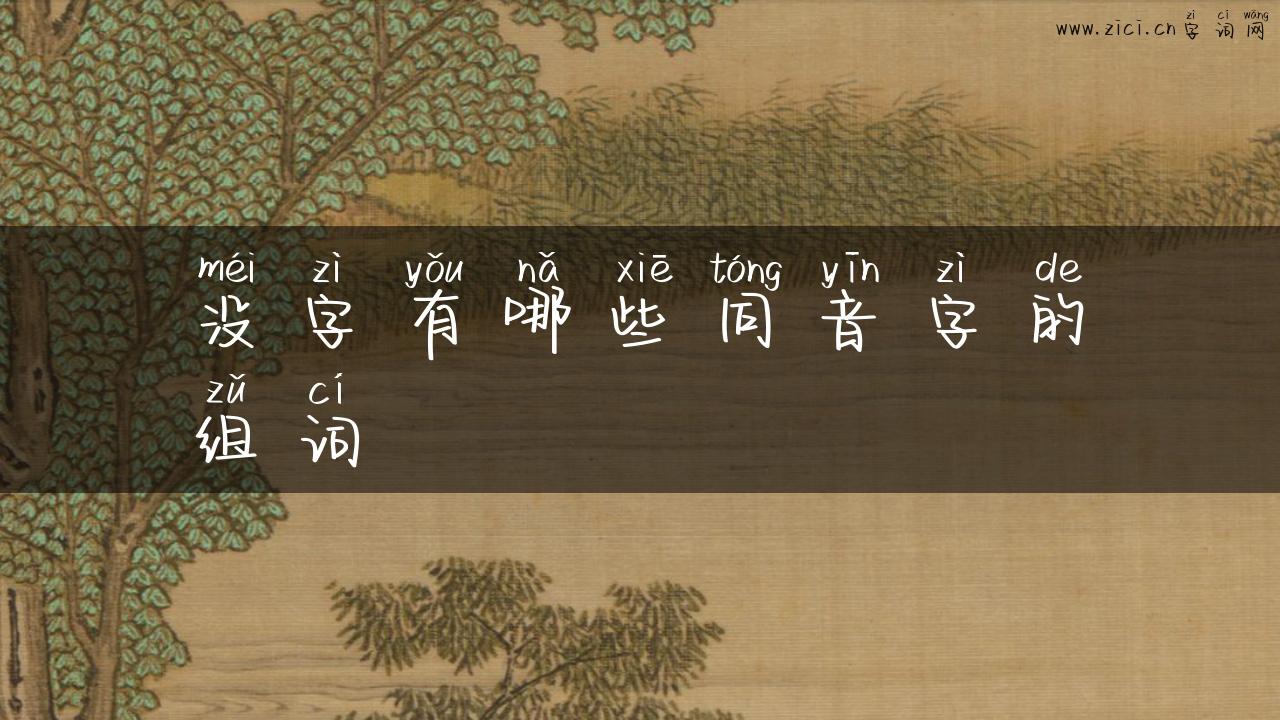 zì cí wǎng
www.zici.cn字词网
méi zì yǒu nǎ xiē tóng yīn zì de
没字有哪些同音字的
zǔ cí
组词